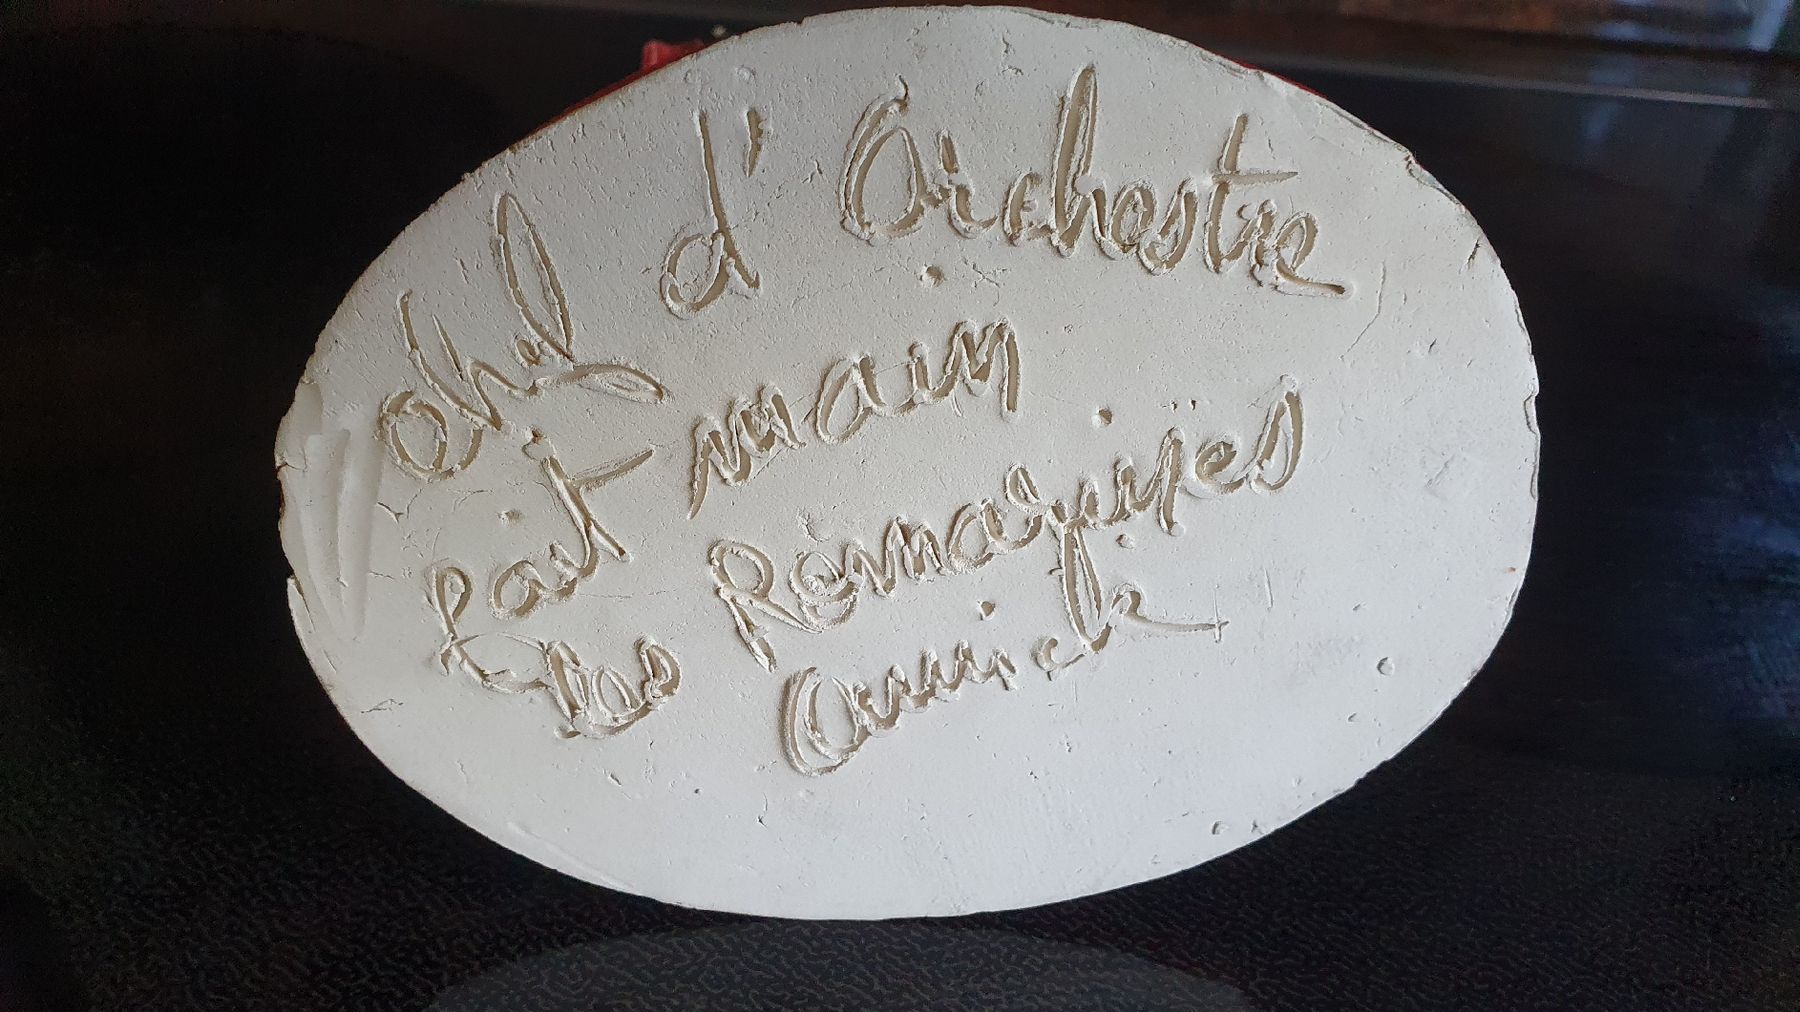 chef d'Orchestre
Fait main
les Romaquïses
Annick